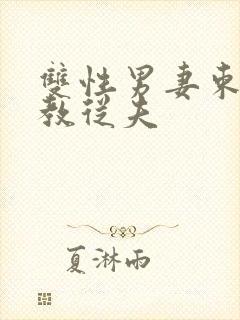 雙性男妻柬
教從夫
夏淋雨